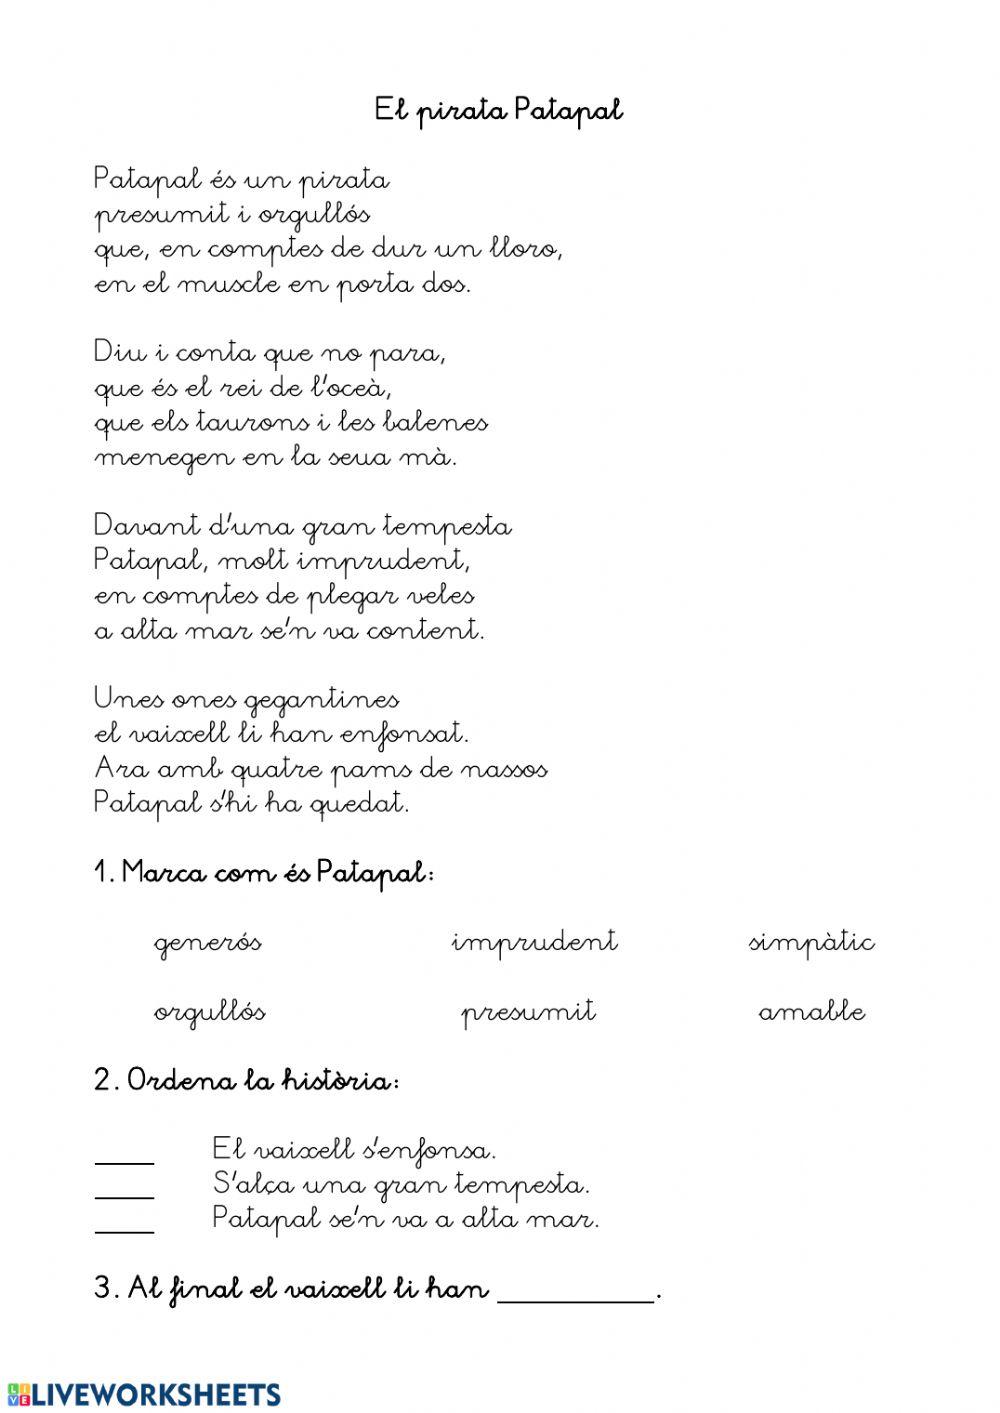 El pirata Patapal
Patapal és un pirata
presumit i orgullós
que, en comptes de dur un lloro,
en el muscle en porta dos.
Diu i conta que no para,
que és el rei de l'oceà,
que els taurons i les balenes
menegen en la seua mà.
Davant d'una gran tempesta
Patapal, molt imprudent,
en comptes de plegar veles
a alta mar se'n va content.
Unes ones gegantines
el vaixell li han enfonsat.
Ara amb quatre pams de nassos
Patapal s'hi ha quedat.
1. Marca com és Patapal:
generós imprudent simpàtic
orgullós presumit amable
2. Ordena la història:
____ El vaixell s'enfonsa.
____ S'alça una gran tempesta.
____ Patapal se'n va a alta mar.
3. Al final el vaixell li han __________.
LIVE LIVEWORKSHEETS